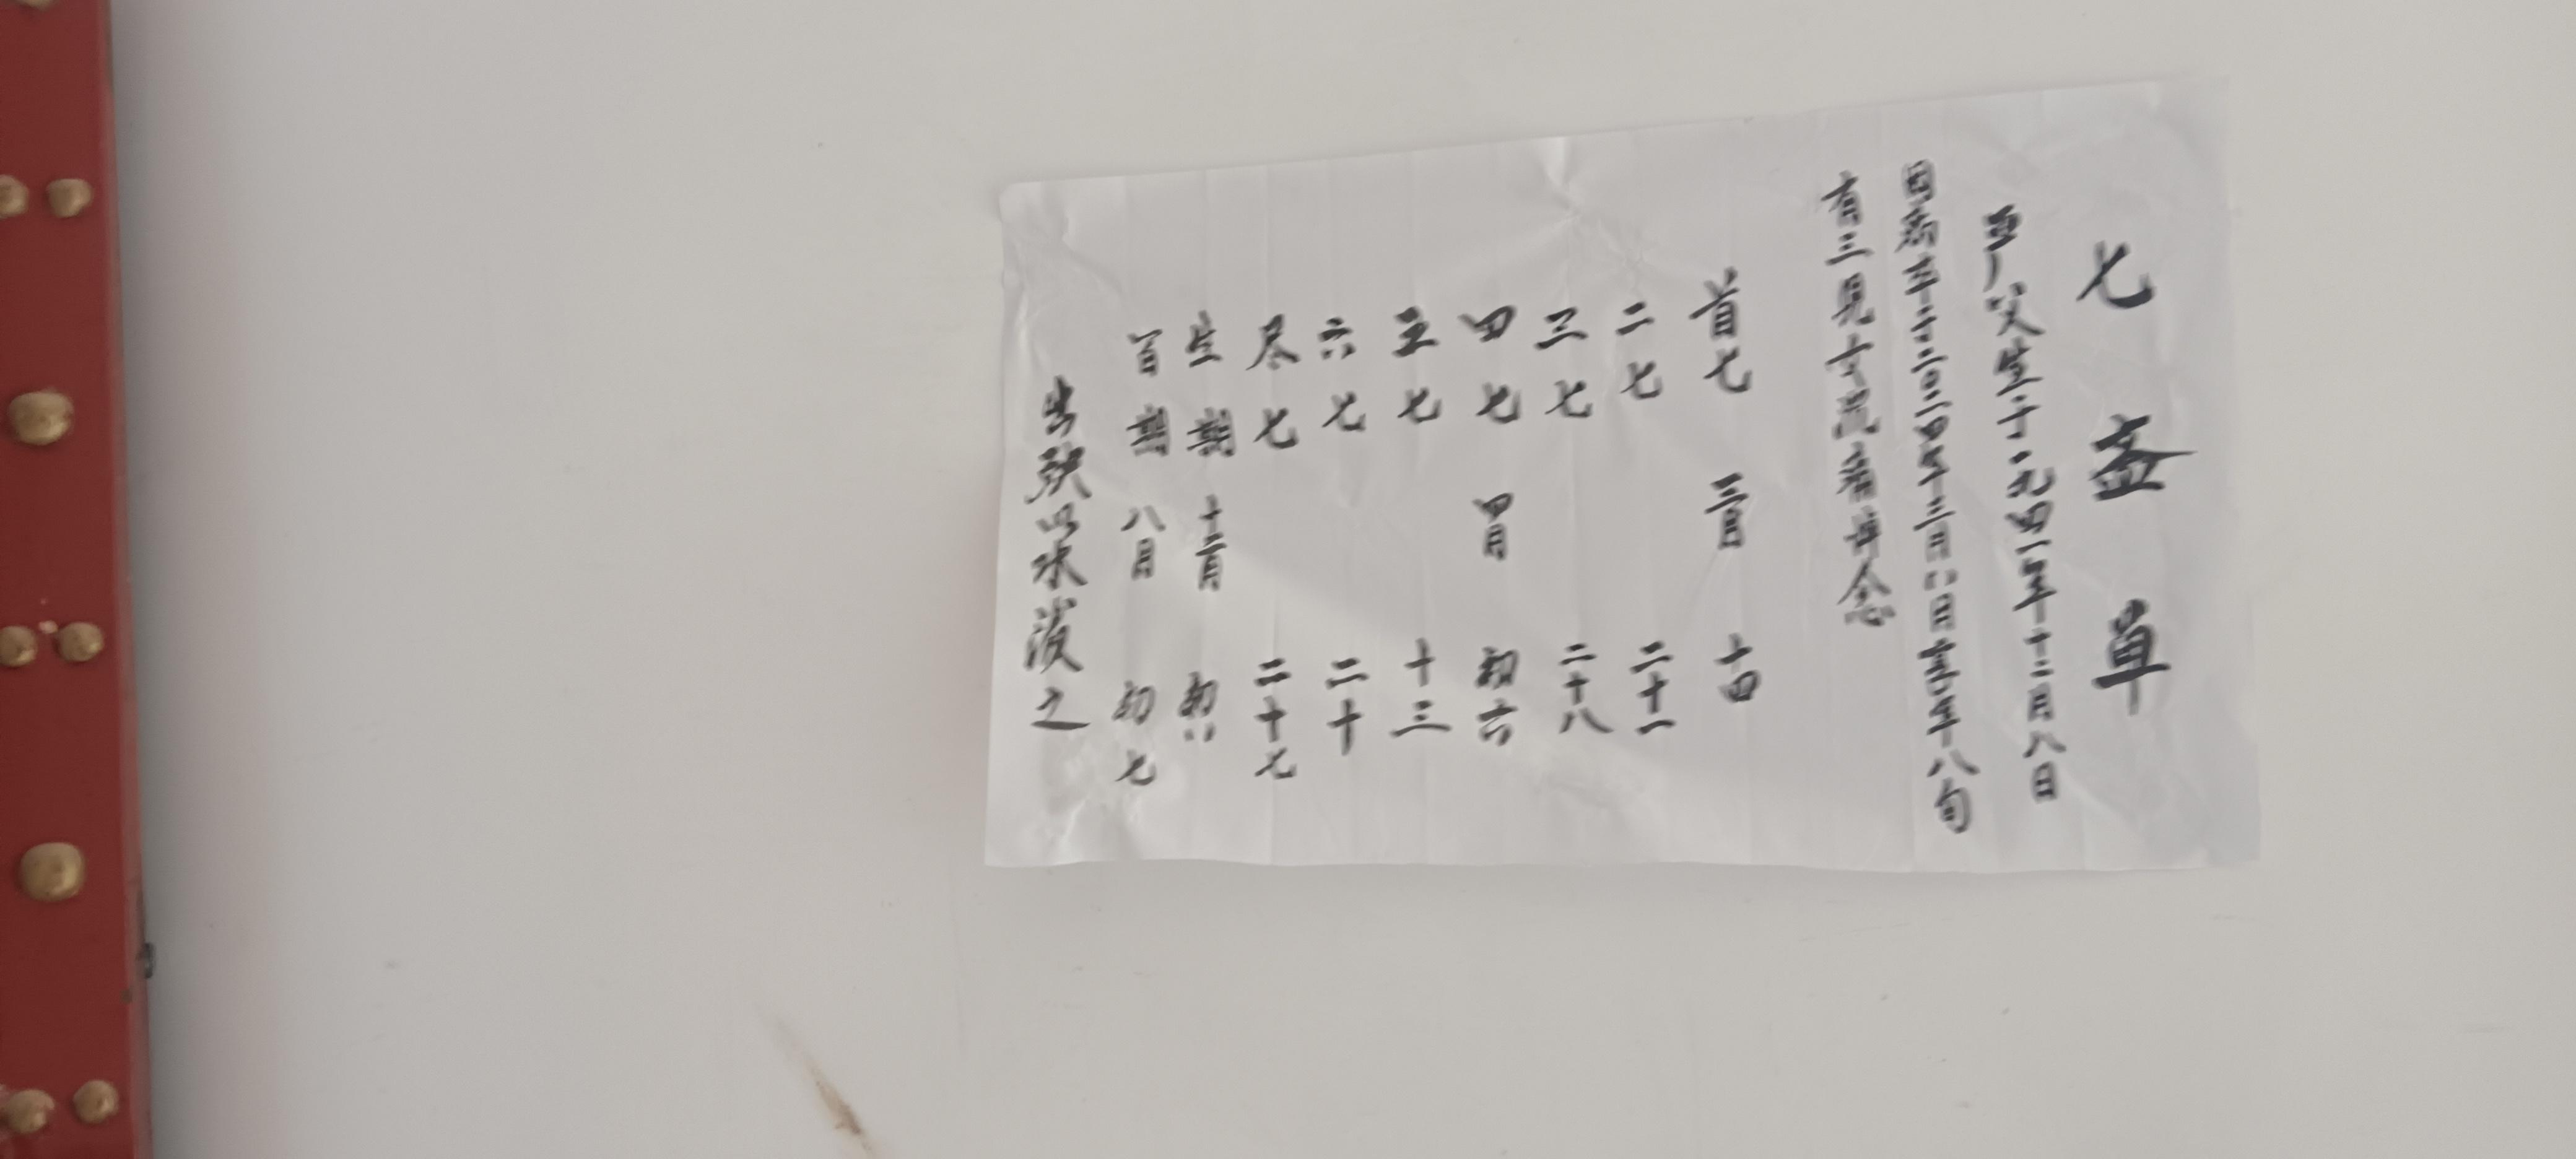 七 斋 单
严父生于一九四一年十二月八日
因病卒于二〇二四年三月八日享年八旬
有三见文泯痛悼念
首七 三月 十四
二七 二十一
三七 二十八
四七 四月 初六
五七 十三
六七 二十
尽七 二十七
生期 十二月 初八
百期 八月 初七
出殃以水泼之